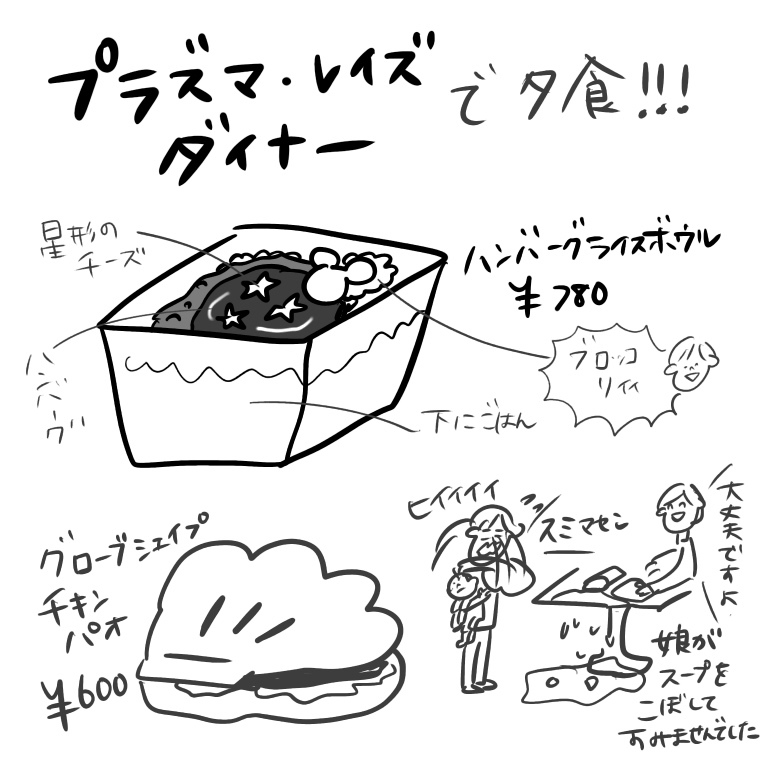 プラズマ・レイズ
ダイナー
で夕食!!!
星形の
チーズ
ハンバーグライスボウル
¥780
ブロッコ
リィィ
ハンバーグ
下にごはん
グローブシェイプ
チキン
パオ
¥600
ヒイイイイ
スミマセン
大丈夫ですよ
娘が
スープを
こぼして
すみませんでした